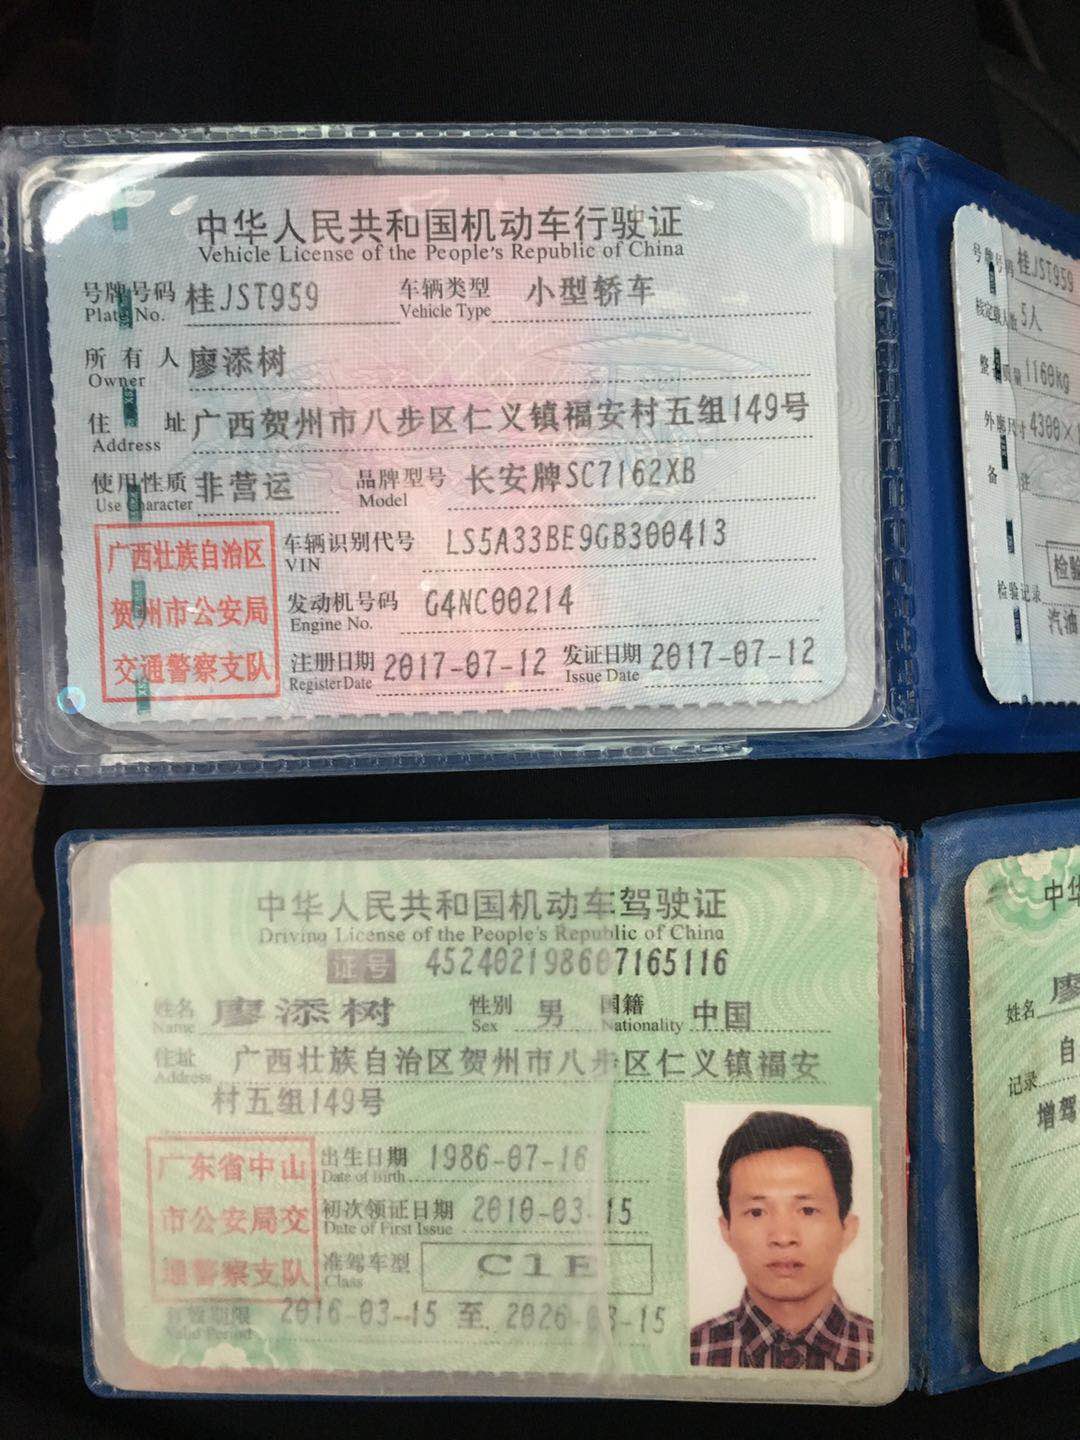 中华人民共和国机动车行驶证
Vehicle License of the People's Republic of China
号牌号码 桂JST959 车辆类型 小型轿车
Plate No. Vehicle Type
所有人 廖添树
Owner
住址 广西贺州市八步区仁义镇福安村五组149号
Address
使用性质 非营运 品牌型号 长安牌SC7162XB
Use Character Model
广西壮族自治区
贺州市公安局
交通警察支队
车辆识别代号 LS5A33BE9GB300413
VIN
发动机号码 G4NC00214
Engine No.
注册日期 2017-07-12 发证日期 2017-07-12
Register Date Issue Date
号牌号码 桂JST959
5人
1160kg
4300×
备注
检验
检验记录
汽油
中华人民共和国机动车驾驶证
Driving License of the People's Republic of China
证号 452402198607165116
姓名 廖添树 性别 男 国籍 中国
Name Sex Nationality
住址 广西壮族自治区贺州市八步区仁义镇福安
Address
村五组149号
广东省中山
市公安局交
通警察支队
出生日期 1986-07-16
Date of Birth
初次领证日期 2010-03-15
Date of First Issue
准驾车型 C1E
Class
有效期限 2016-03-15 至 2026-03-15
Valid Period
中华
姓名 廖
自
记录
增驾